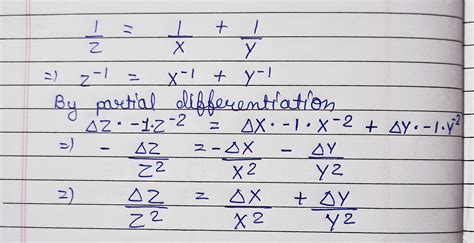 1/Z = 1/X + 1/Y
=) Z⁻¹ = X⁻¹ + Y⁻¹
By partial differentiation
ΔZ · -1 · Z⁻² = ΔX · -1 · X⁻² + ΔY · -1 · Y⁻²
=) - ΔZ/Z² = - ΔX/X² - ΔY/Y²
=) ΔZ/Z² = ΔX/X² + ΔY/Y²